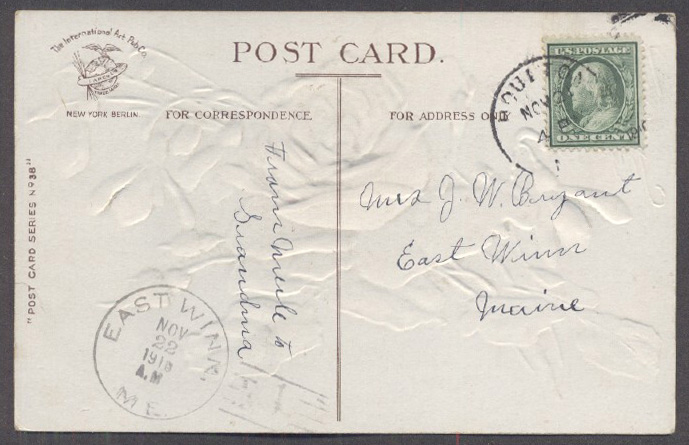 The International Art Pub. Co.
NEW YORK BERLIN.
POST CARD.
FOR CORRESPONDENCE.
FOR ADDRESS ONLY
"POST CARD SERIES Nº 38"
U.S. POSTAGE
ONE CENT
NOV
From Merle to
Grandma
Mrs J. W. Bryant
East Winn
Maine
EAST WINN,
NOV
22
A.M
ME.